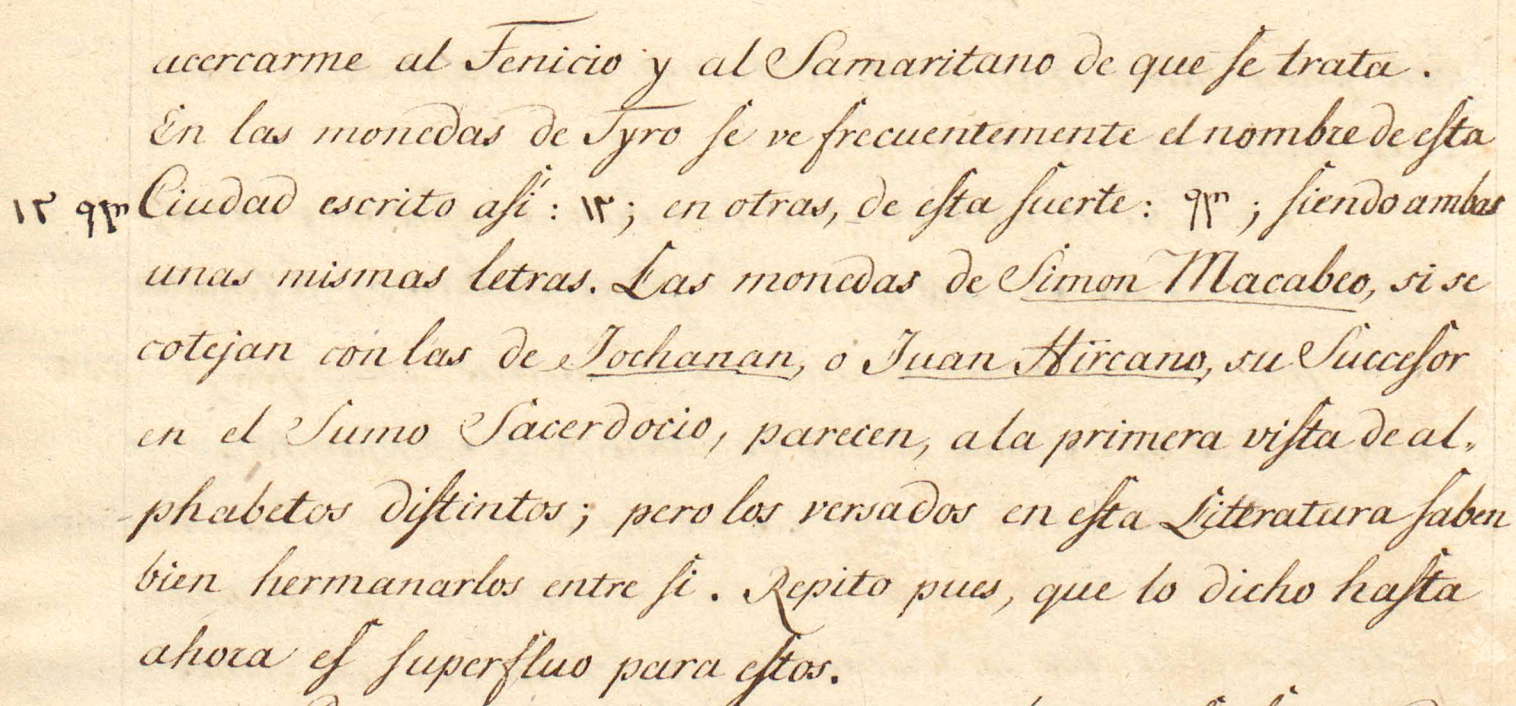 acercarme al Fenicio y al Samaritano de que se trata.
En las monedas de Tyro se ve frecuentemente el nombre de esta
Ciudad escrito así: ; en otras, de esta suerte: ; siendo ambas
unas mismas letras. Las monedas de Simon Macabeo, si se
cotejan con las de Jochanan, o Juan Hircano, su Succesor
en el Sumo Sacerdocio, parecen, a la primera vista de al-
phabetos distintos; pero los versados en esta Literatura saben
bien hermanarlos entre si. Repito pues, que lo dicho hasta
ahora es superfluo para estos.